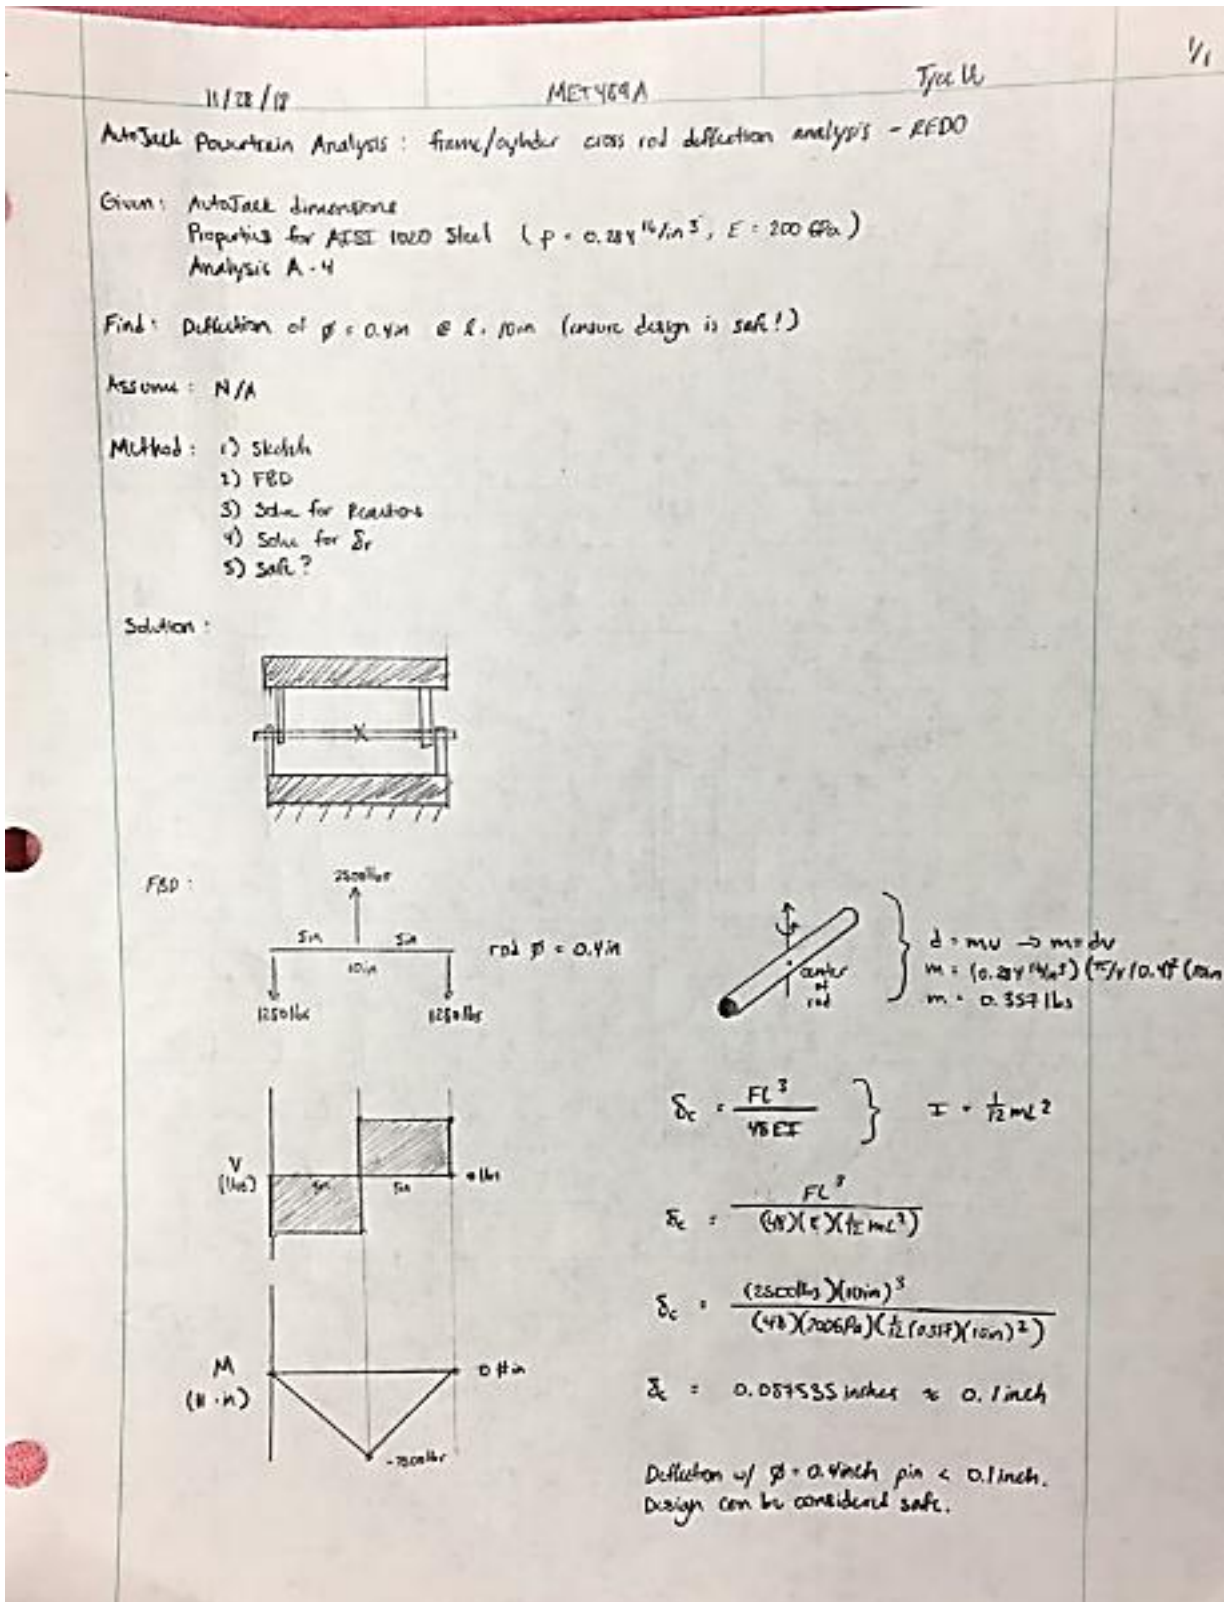 1/1
11/28/18 MET489A
AutoJack Powertrain Analysis : frame/cylinder cross rod deflection analysis - REDO
Given : AutoJack dimensions
Properties for AISI 1020 Steel ( ρ = 0.284 lb/in³, E = 200 GPa )
Analysis A-4
Find : Deflection of ∅ = 0.4in @ l = 10in (ensure design is safe!)
Assume : N/A
Method : 1) Sketch
2) FBD
3) Solve for Reactions
4) Solve for δr
5) Safe ?
Solution :
FBD :
2500lbs
5in 5in
10in
rod ∅ = 0.4in
1250lbs 1250lbs
center
of
rod
d = mv → m = dv
m = (0.284 lb/in³) (π/4 (0.4)² (10in
m = 0.357 lbs
V
(lbs)
5in 5in
0 lbs
δc = FL³ / 48EI } I = 1/12 mL²
δc = FL³ / (48)(E)(1/12 mL²)
δc = (2500lbs)(10in)³ / (48)(200GPa)(1/12 (0.357)(10in)²)
M
(# · in)
0 #in
δc = 0.087535 inches ≈ 0.1 inch
Deflection w/ ∅ = 0.4inch pin < 0.1 inch.
Design can be considered safe.